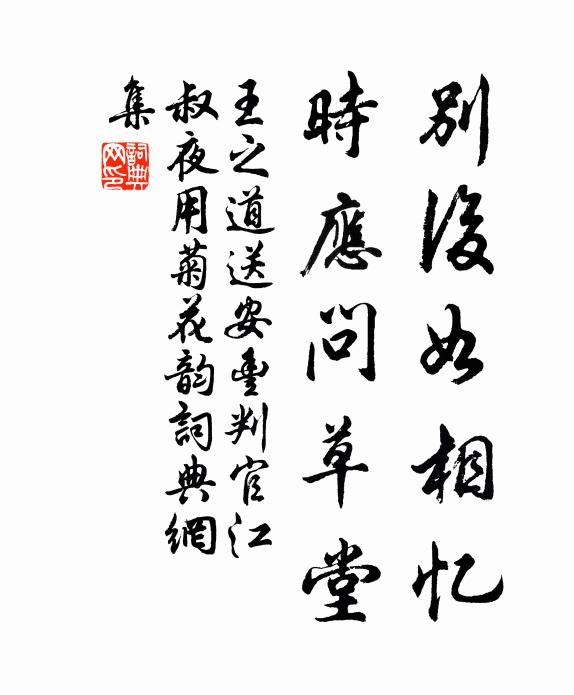 别後如相忆
時應問草堂
王之道送安豊判官江
叔夜用菊花韵詞典網
集
詞典
网印